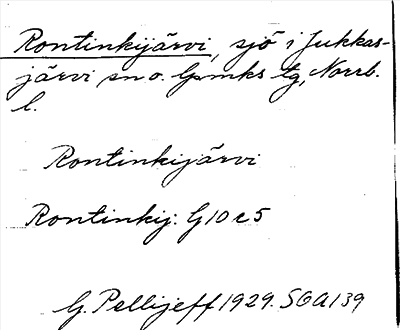 Rontinkijärvi, sjö i Jukkas-
järvi sn o. lpmks tg, Norrb.
l.
Rontinkijärvi
Rontinkij: G10c5
G. Pellijeff 1929. SOA 139